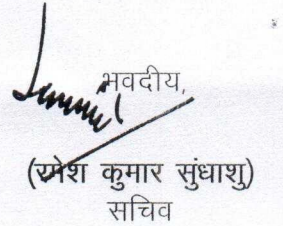 भवदीय,
(रमेश कुमार सुंधाशु)
सचिव